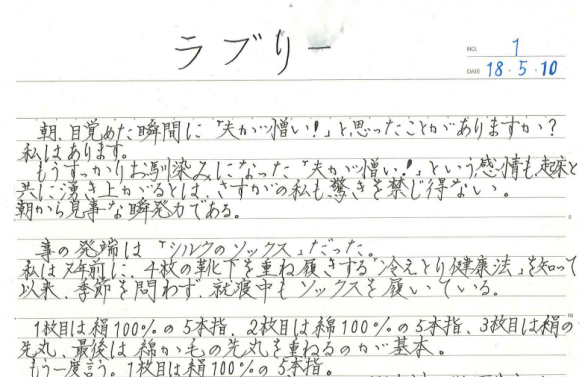 ラブリー
NO. 1
DATE 18・5・10
朝、目覚めた瞬間に「夫が憎い!」と思ったことがありますか?
私はあります。
もうすっかりお馴染みになった「夫が憎い!」という感情も起床と
共に湧き上がるとは、さすがの私も驚きを禁じ得ない。
朝から見事な瞬発力である。
事の発端は「シルクのソックス」だった。
私は 年前に、4枚の靴下を重ね履きする「冷えとり健康法」を知って
以来、季節を問わず、就寝中もソックスを履いている。
1枚目は絹100%の5本指、2枚目は綿100%の5本指、3枚目は絹の
先丸、最後は綿か毛の先丸を重ねるのが基本。
もう一度言う。1枚目は絹100%の5本指。